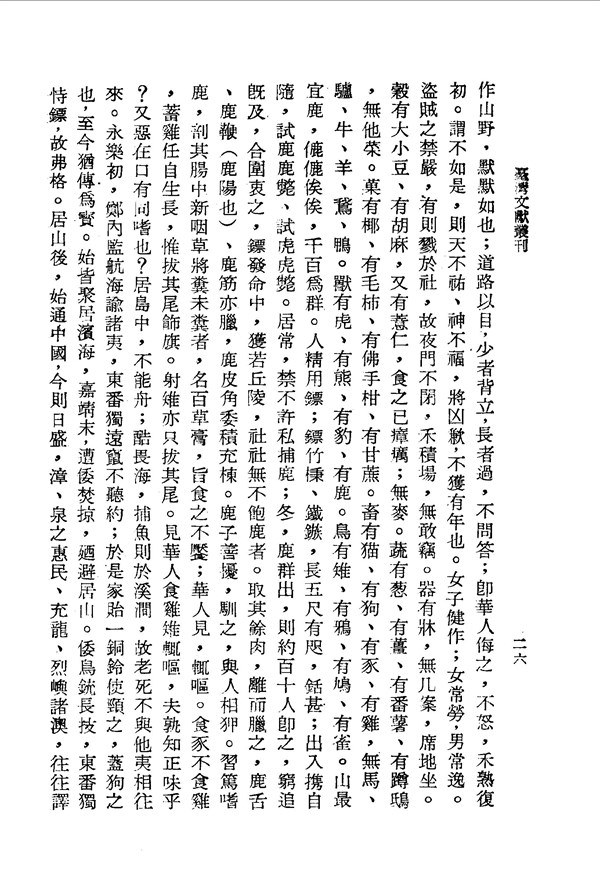 臺灣文獻叢刊
二六
作山野，默默如也；道路以目，少者背立，長者過，不問答；卽華人侮之，不怒，禾熟復
初。謂不如是，則天不祐、神不福，將凶歉，不獲有年也。女子健作；女常勞，男常逸。
盜賊之禁嚴，有則戮於社，故夜門不閉，禾積場，無敢竊。器有牀，無几案，席地坐。
穀有大小豆、有胡麻，又有薏仁，食之已瘴癘；無麥。蔬有葱、有薑、有番薯、有蹲鴟
，無他菜。菓有椰、有毛柿、有佛手柑、有甘蔗。畜有猫、有狗、有豕、有雞，無馬、
驢、牛、羊、鵞、鴨。獸有虎、有熊、有豹、有鹿。鳥有雉、有鴉、有鳩、有雀。山最
宜鹿，儦儦俟俟，千百爲群。人精用鏢；鏢竹棅、鐵鏃，長五尺有咫，銛甚；出入携自
隨，試鹿鹿斃、試虎虎斃。居常，禁不許私捕鹿；冬，鹿群出，則約百十人卽之，窮追
旣及，合圍衷之，鏢發命中，獲若丘陵，社社無不飽鹿者。取其餘肉，離而臘之，鹿舌
、鹿鞭（鹿陽也）、鹿筋亦臘，鹿皮角委積充棟。鹿子善擾，馴之，與人相狎。習篤嗜
鹿，剖其腸中新咽草將糞未糞者，名百草膏，旨食之不饜；華人見，輒嘔。食豕不食雞
，蓄雞任自生長，惟拔其尾飾旗。射雉亦只拔其尾。見華人食雞雉輒嘔，夫孰知正味乎
？又惡在口有同嗜也？居島中，不能舟；酷畏海，捕魚則於溪澗，故老死不與他夷相往
來。永樂初，鄭內監航海諭諸夷，東番獨遠竄不聽約；於是家貽一銅鈴使頸之，蓋狗之
也，至今猶傳爲寳。始皆聚居濱海，嘉靖末，遭倭焚掠，廼避居山。倭鳥銃長技，東番獨
恃鏢，故弗格。居山後，始通中國，今則日盛，漳、泉之惠民、充龍、烈嶼諸澳，往往譯